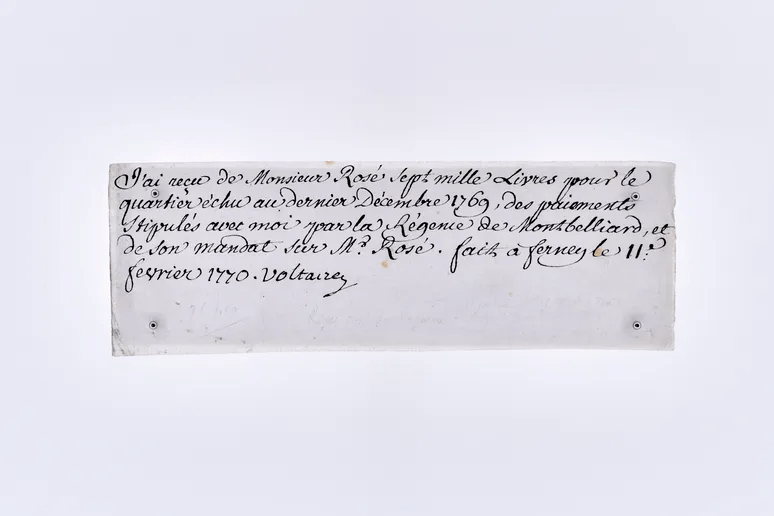 J'ai reçu de Monsieur Rosé sept mille Livres pour le
quartier échu au dernier Décembre 1769, des paiements
stipulés avec moi par la Régence de Montbelliard, et
de son mandat sur Mr. Rosé. fait à ferney le 11.e
fevrier 1770. Voltaire